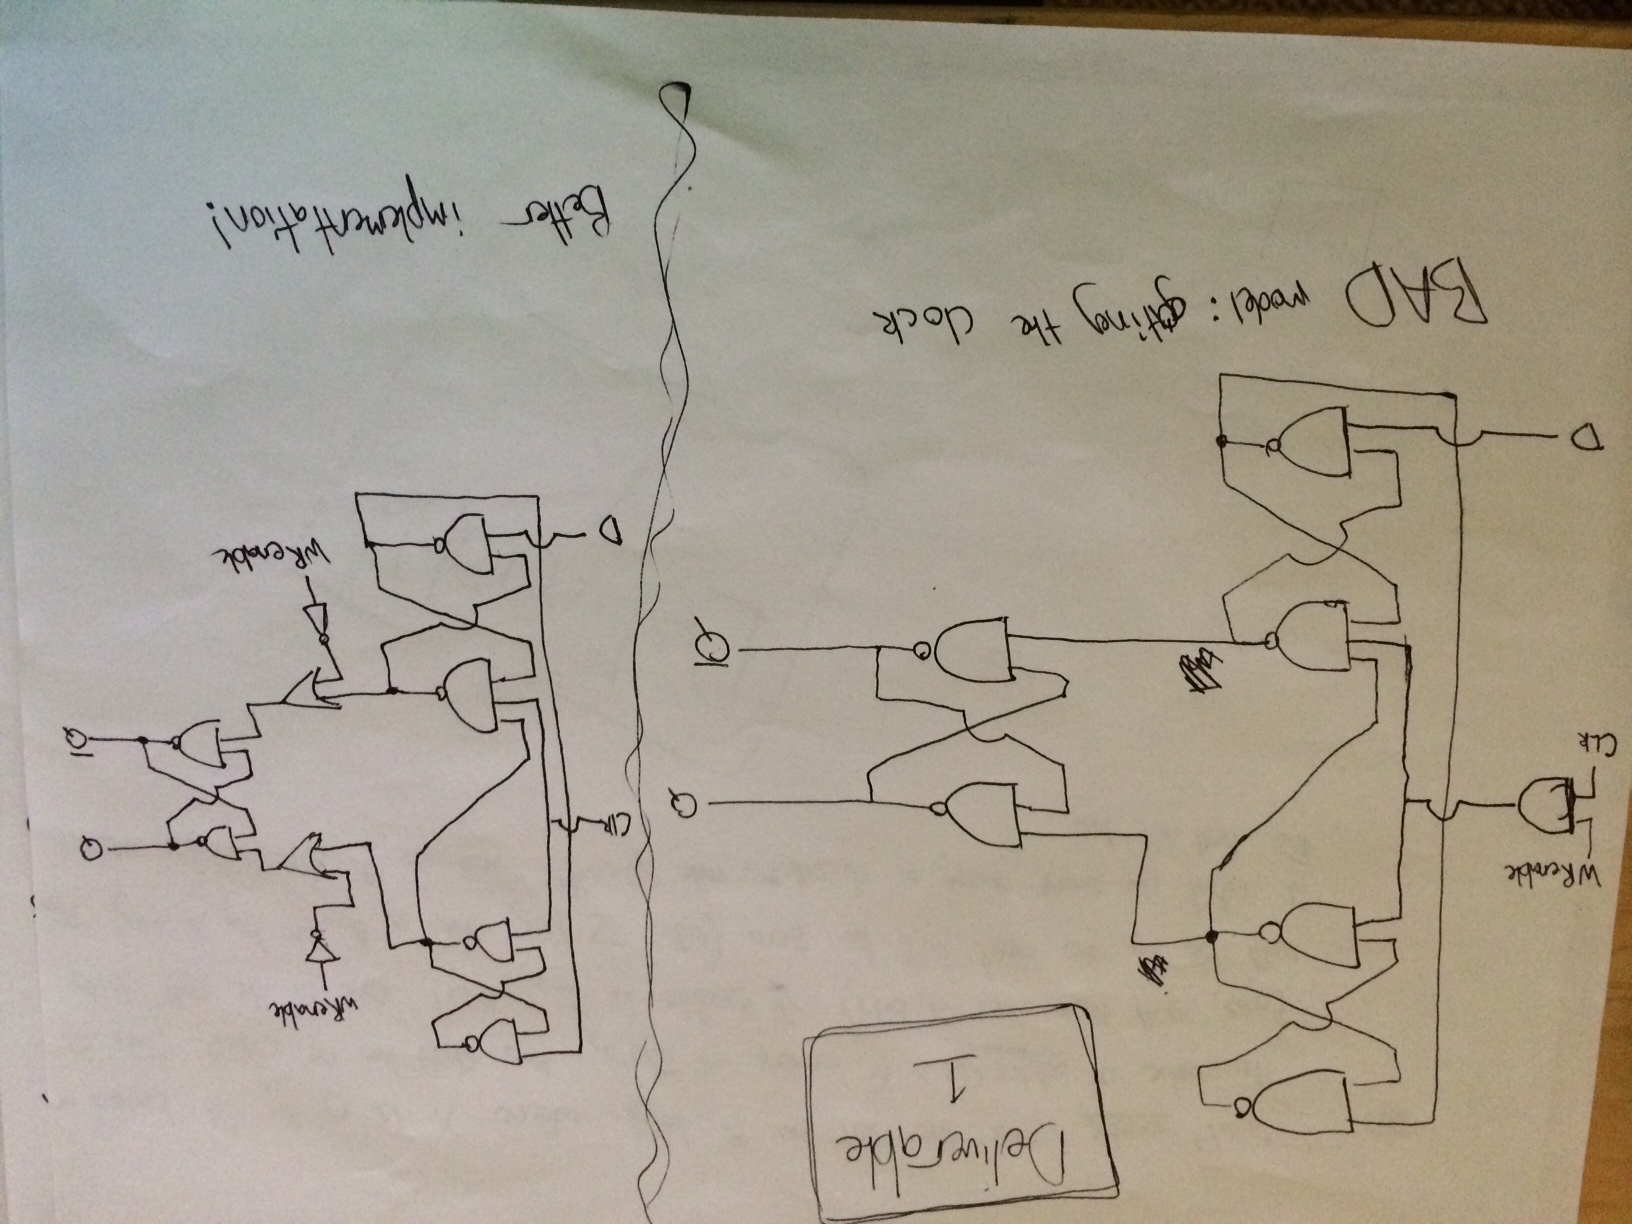 Deliverable
1
WRenable
Clk
D
Q
Q
BAD model: gating the clock
wRenable
Clk
D
wRenable
Q
Q
Better implementation!